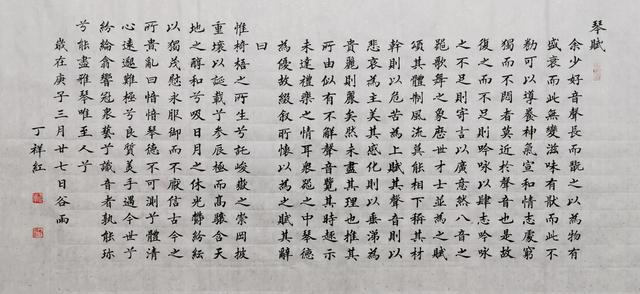 琴賦
余少好音聲長而翫之以為物有
盛衰而此無變滋味有猒而此不
勌可以導養神氣宣和情志處窮
獨而不悶者莫近於聲音也是故
復之而不足則吟詠以肆志吟詠
之不足則寄言以廣意然八音之
器歌舞之象歷世才士並為之賦
頌其體制風流莫能相下稱其材
幹則以危苦為上賦其聲音則以
悲哀為主美其感化則以垂涕為
貴麗則麗矣然未盡其理也推其
所由似有不解聲音覽其趣
未達禮樂之情耳衆器之中琴德
為優故綴敘所懷以為之賦其辭
曰
惟椅梧之所生兮託峻嶽之崇岡披
重壤以誕載兮參辰極而高驤含天
地之醇和兮吸日月之休光鬱紛紜
以獨茂慰永服御而不厭信古今之
所貴亂曰愔愔琴德不可測兮體清
心遠邈難極兮良質美手遇今世兮
紛綸翕響冠衆藝兮識音者孰能珎
兮能盡雅琴唯至人兮
歲在庚子三月廿七日谷雨
丁祥紅